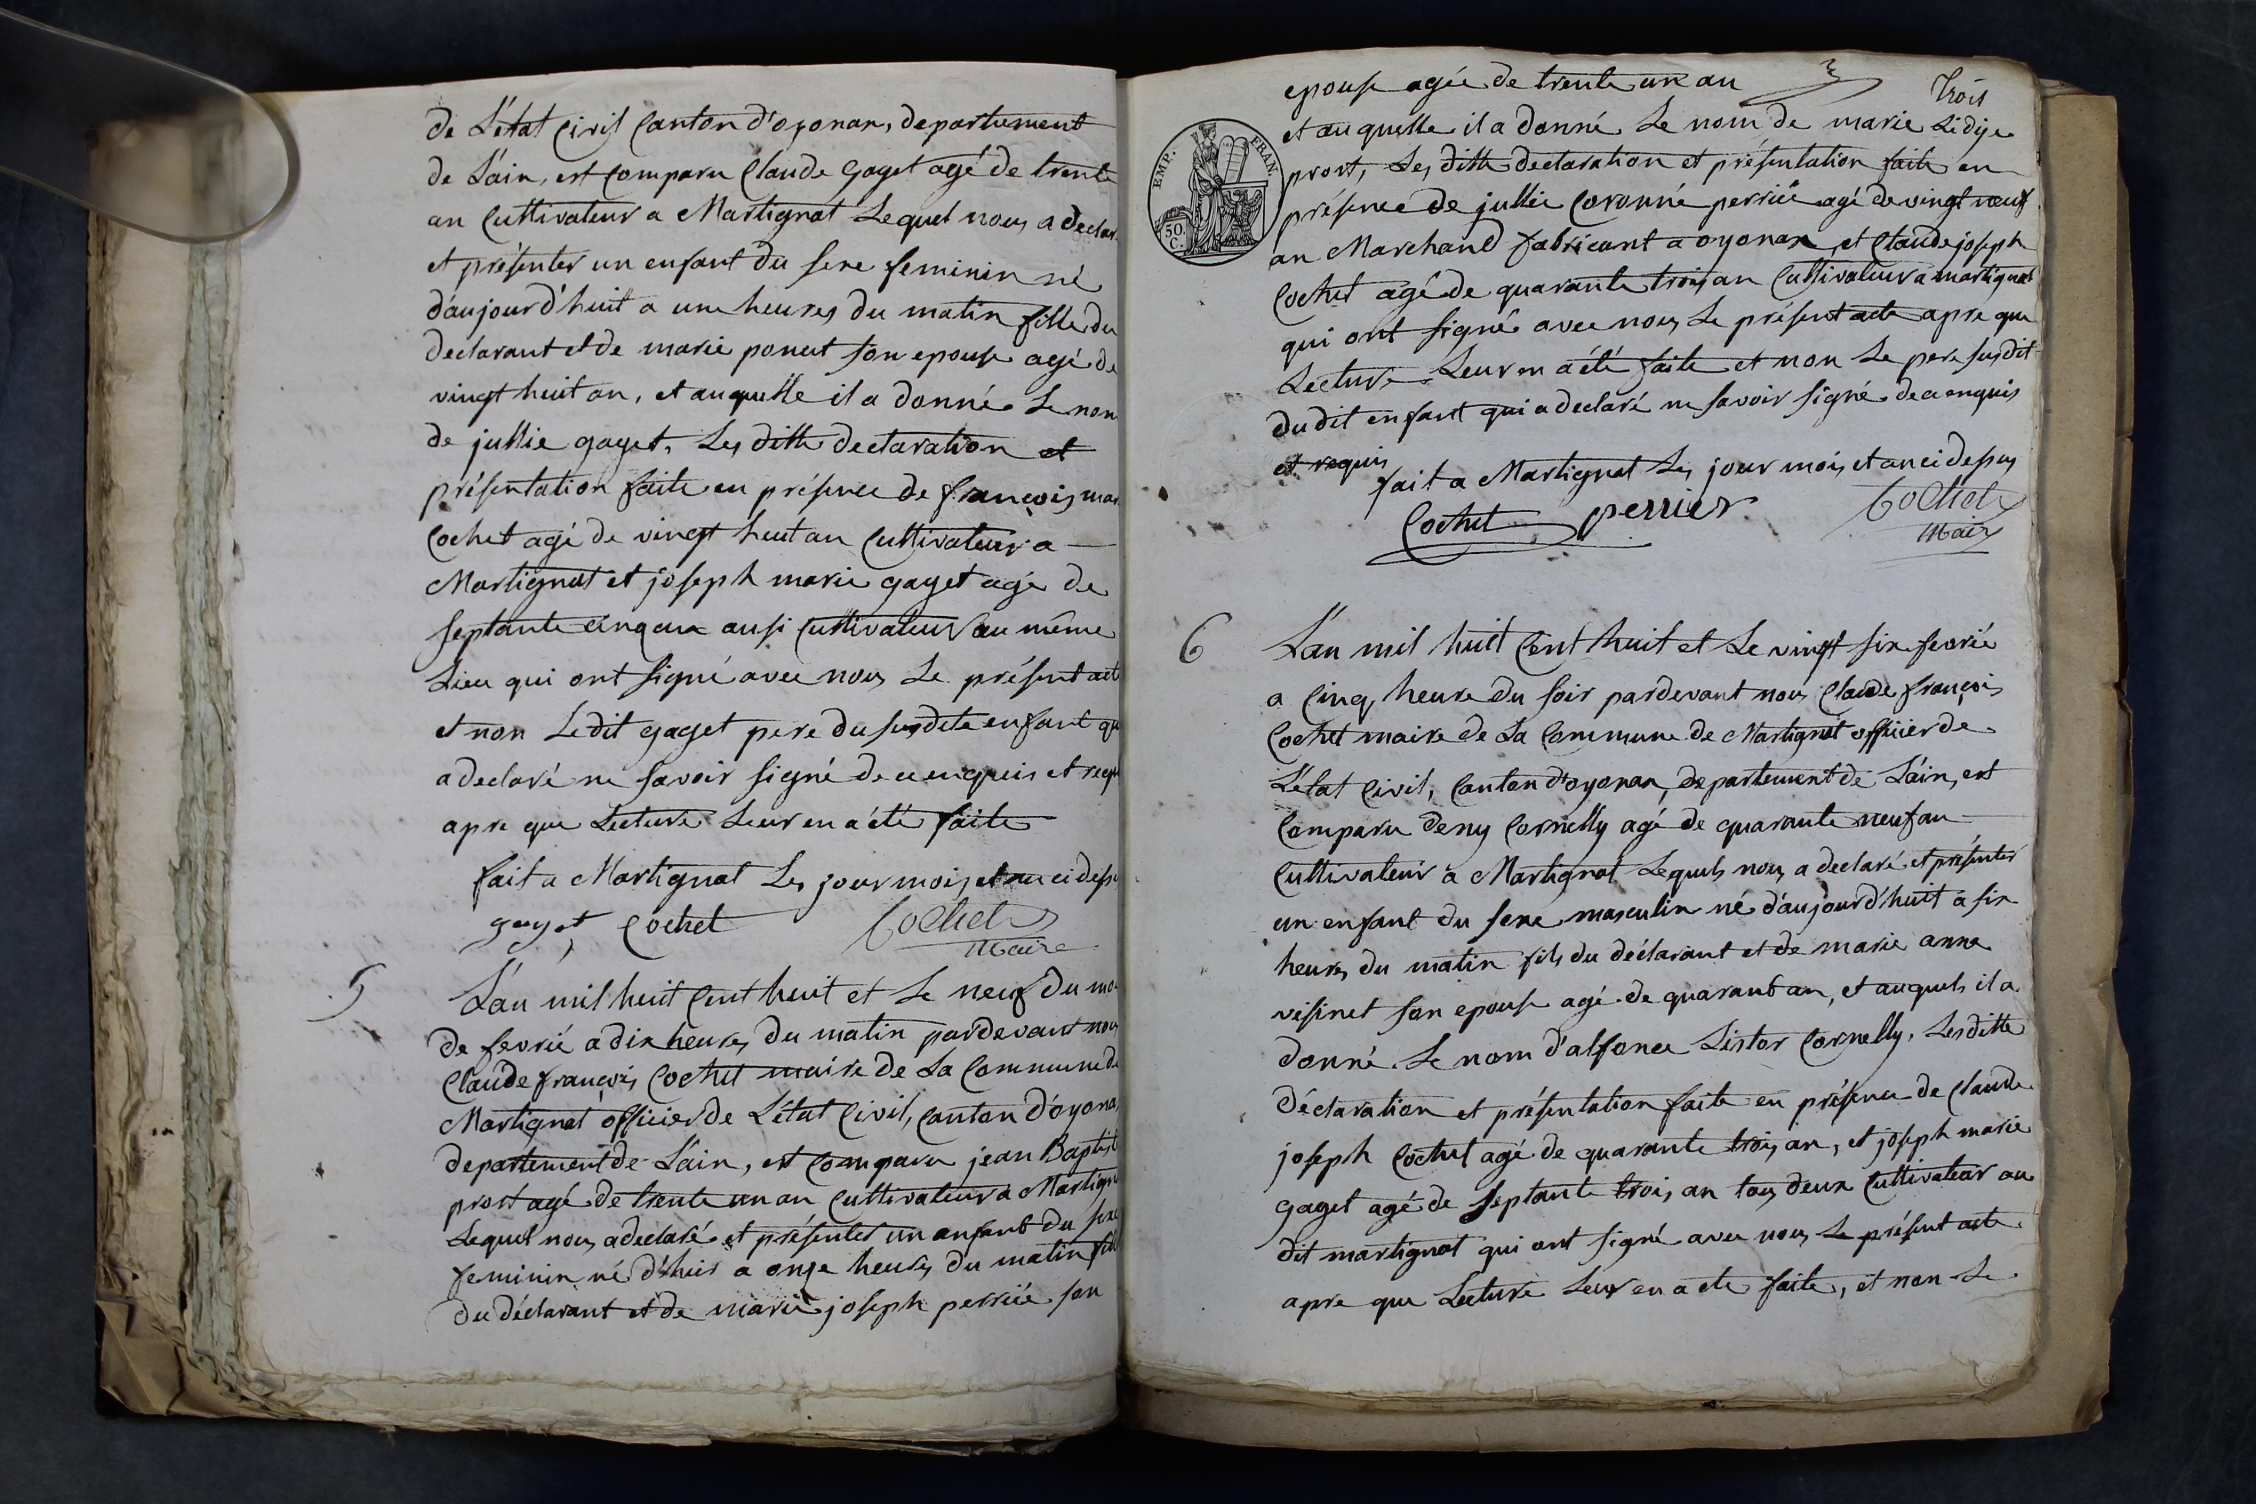 de L'état Civil Canton d'oyonax, departement
de L'ain, est Comparu Claude gaget agé de trente
an Cultivateur a Martignat Lequel nous a declar
et présenter un enfant du sexe feminin né
d'aujourd'huit a une heures du matin fille du
declarant et de marie poncet son epouse agé de
vingt huit an, et auquelle il a donné Le nom
de jullie gaget, Les ditte declaration et
présentation faite en présence de françois mar
Cochet agé de vingt huit an Cultivateur a
Martignat et joseph marie gaget agé de
septante cinq an ausi Cultivateur au même
Lieu qui ont signé avec nous Le présent acte
et non Le dit gaget pere du susdite enfant qu
a declaré ne savoir signé de ce enquis et requ
apre que Lecture Leur en a été faite
fait a Martignat Les jour mois et an ci desu
gaget Cochet Cochet
Maire
5 L'an mil huit Cent huit et Le neuf du mo
de fevrié a dix heures du matin pardevant nous
Claude françois Cochet maire de La Commune de
Martignat officier de L'état Civil, Canton d'oyona
departement de L'ain, est Comparu jean Baptist
prost agé de trente un an Cultivateur a Martign
Lequel nous a declaré et présenter un anfant du sexe
feminin né d'hier a onze heures du matin fill
du déclarant et de marie joseph perrié son
Trois
epouse agée de trente un an
et au quelle il a donné Le nom de marie Lidye
prost, Les ditte declaration et présentation faite en
EMP. FRAN.
50. C.
présence de jullie Coronné perrié agé de vingt neuf
an Marchand fabricant a oyonax et Claude joseph
Cochet agé de quarante trois an Cultivateur a martignat
qui ont signé avec nous Le présent acte apre que
Lecture Leur en a été faite et non Le pere susdit
du dit enfant qui a declaré ne savoir signé de ce enquis
et requis
fait a Martignat Les jour mois et an ci desus
Cochet perrier Cochet
Maire
6 L'an mil huit Cent huit et Le vingt six fevrié
a Cinq heure du soir pardevant nous Claude françois
Cochet maire de La Commune de Martignat officier de
L'état Civil, Canton d'oyonax, departement de L'ain, est
Comparu deny Cornelly agé de quarante neuf an
Cultivateur a Martignat Lequels nous a declaré et présenter
un enfant du sexe masculin né d'aujourd'huit a six
heures du matin fils du déclarant et de marie anne
visinet son epouse agé de quarant an, et auquels il a
donné Le nom d'alfonce Listor Cornelly, Les ditte
déclaration et présentation faite en présence de Claude
joseph Cochet agé de quarante trois an, et joseph marie
gaget agé de septante trois an tous deux Cultivateur au
dit martignat qui ont signé avec nous Le présent acte
apre que Lecture Leur en a eté faite, et non Le